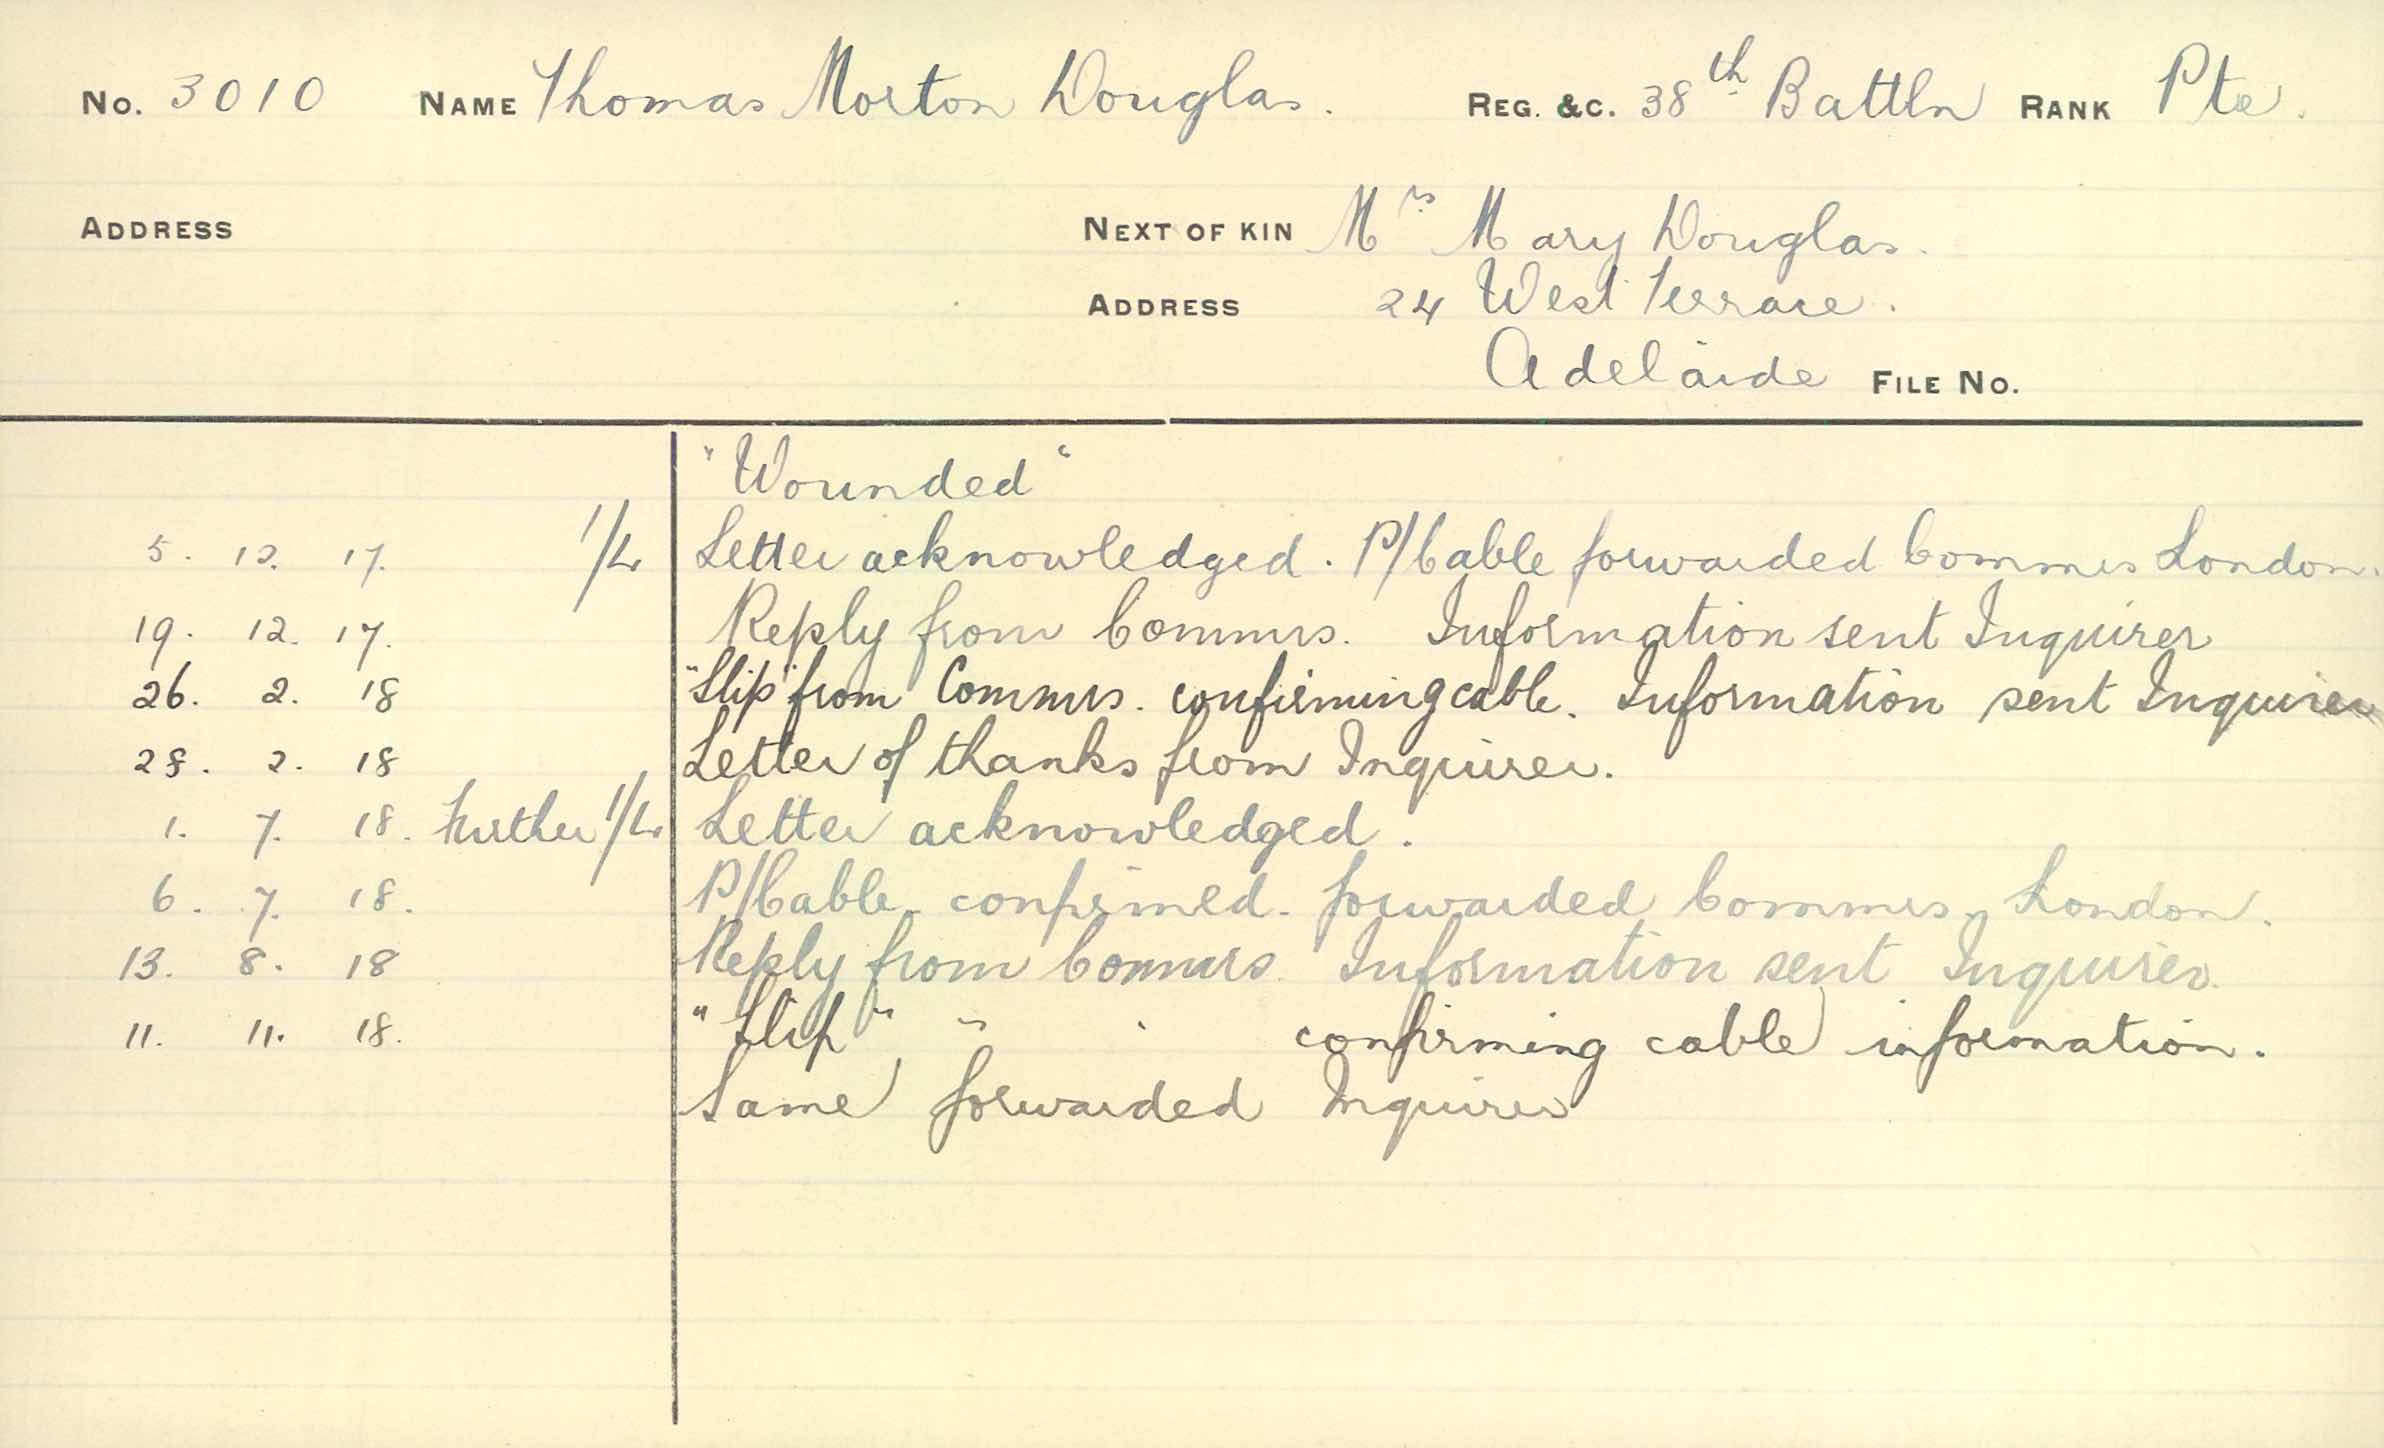 No. 3010 NAME Thomas Morton Douglas. REG. &C. 38th Battln RANK Pte.
ADDRESS NEXT OF KIN Mrs Mary Douglas.
ADDRESS 24 West Terrace.
Adelaide FILE No.
"Wounded"
5. 12. 17. 1/L Letter acknowledged. P/Cable forwarded Commrs London.
19. 12. 17. Reply from Commrs. Information sent Inquirer
26. 2. 18 "Slip" from Commrs. confirming cable. Information sent Inquirer
28. 2. 18 Letter of thanks from Inquirer.
1. 7. 18. Further 1/L Letter acknowledged.
6. 7. 18. P/Cable confirmed. forwarded Commrs, London.
13. 8. 18 Reply from Commrs. Information sent Inquirer.
11. 11. 18. "Slip" " " confirming cable information.
Same forwarded Inquirer